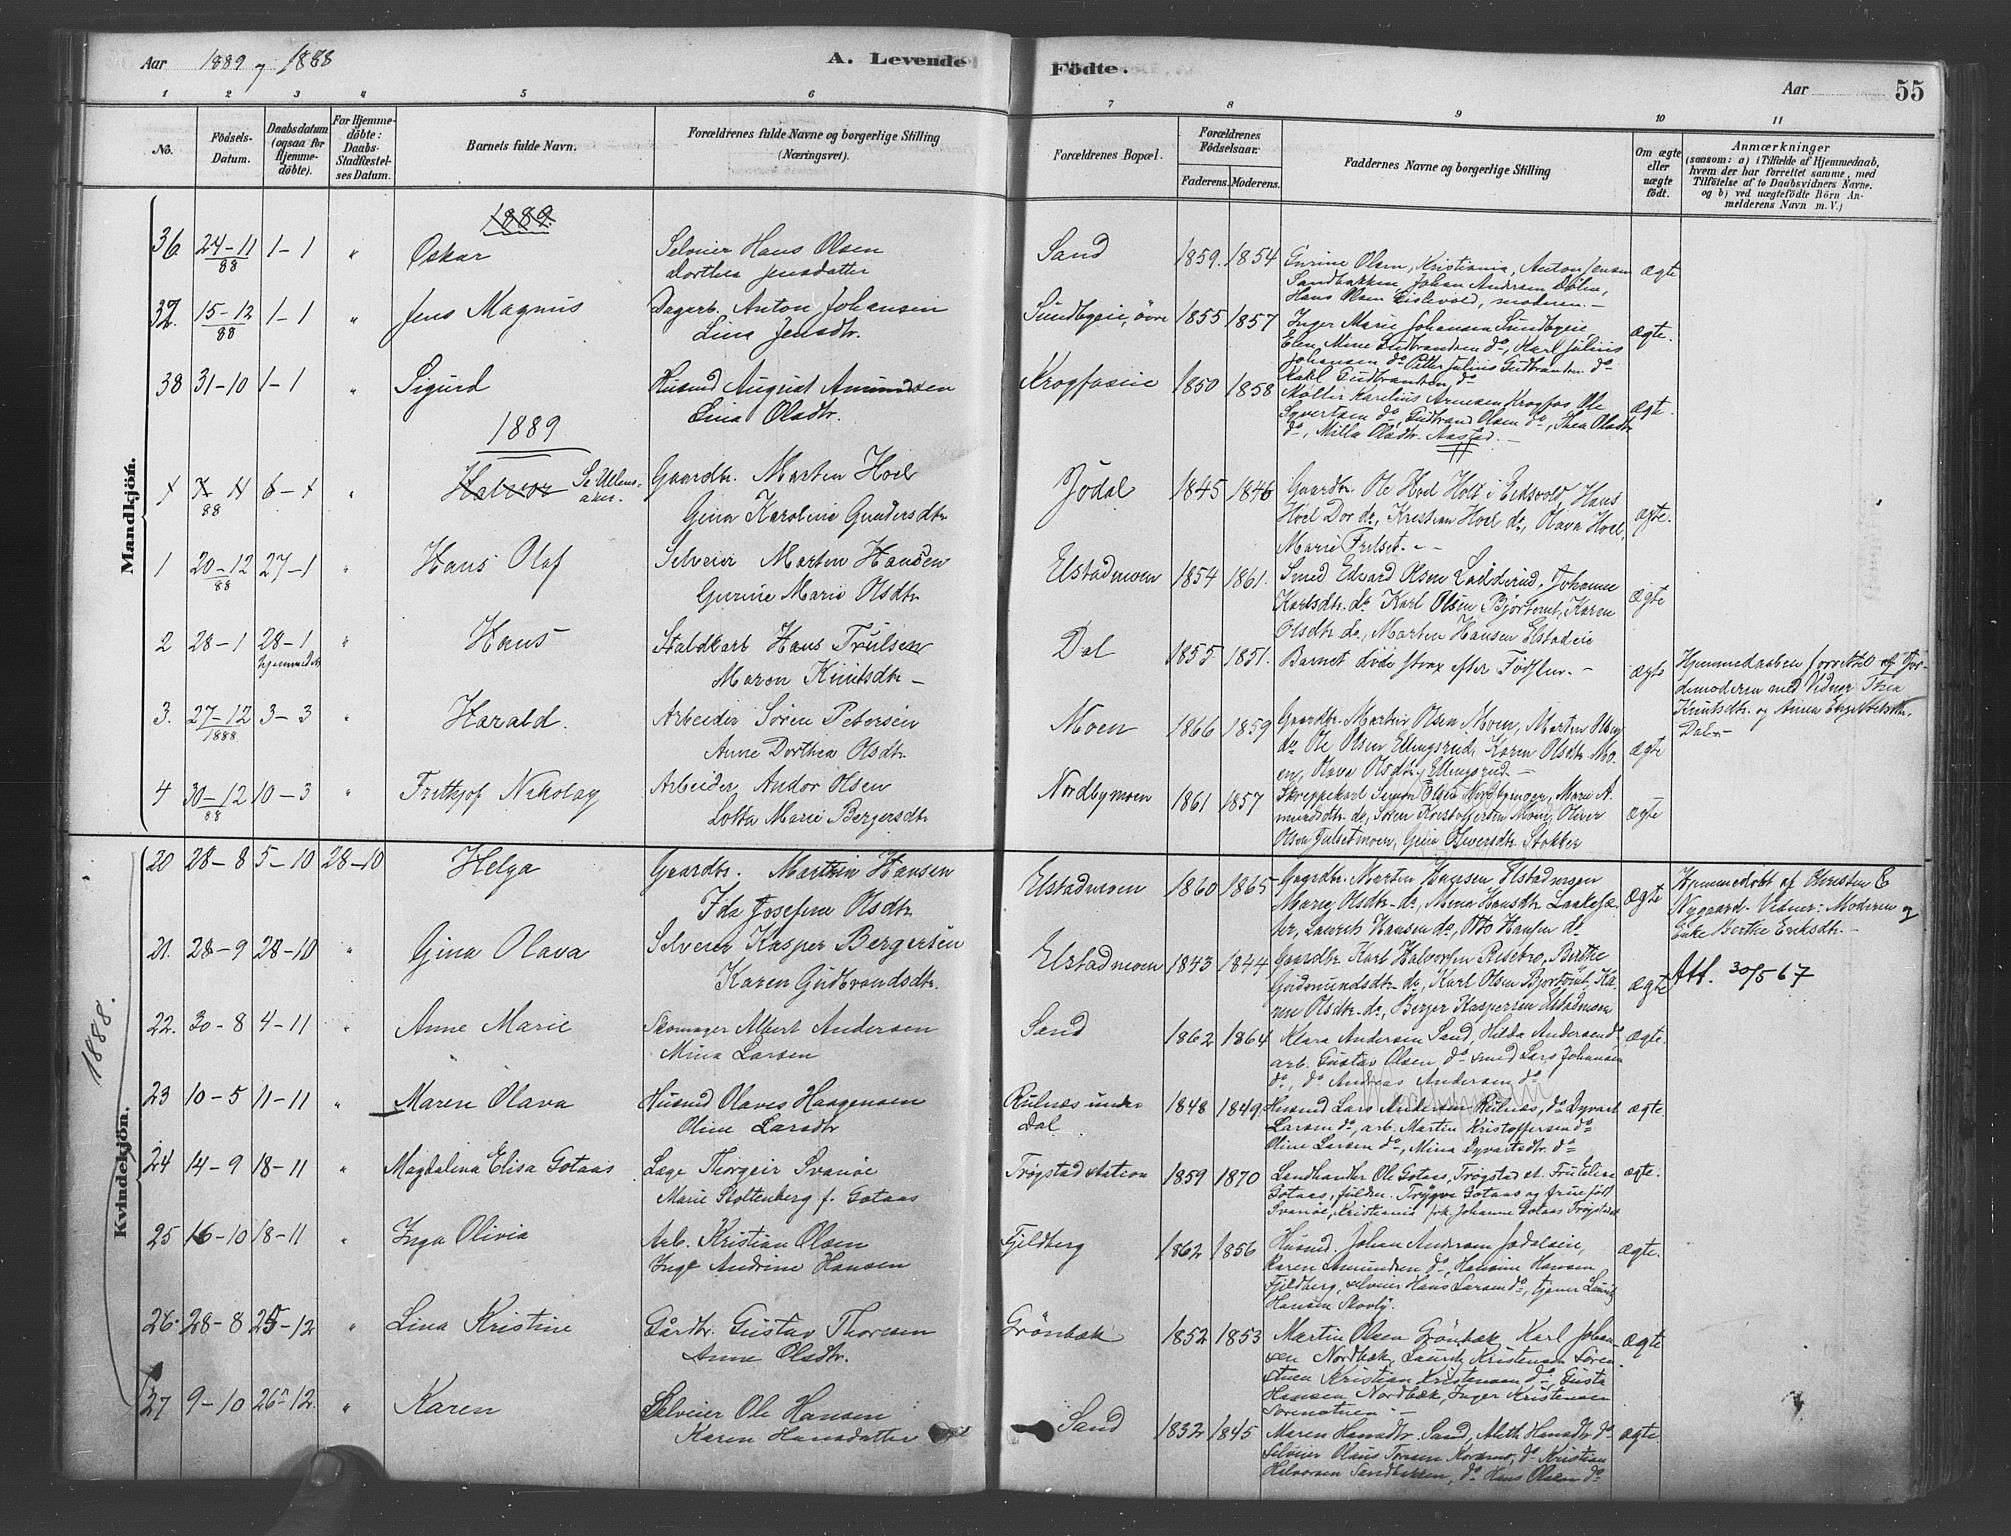 Aar 1889 og 1888
A. Levende Födte.
Aar 55
1 2 3 4 5 6 7 8 9 10 11
No.
Födsels-
Datum.
Daabsdatum
(ogsaa for
Hjemme-
döbte).
For Hjemme-
döbte:
Daabs-
Stadfæstel-
ses Datum.
Barnets fulde Navn.
Forældrenes fulde Navne og borgerlige Stilling
(Næringsvei).
Forældrenes Bopæl.
Forældrenes
Födselsaar.
Faderens. Moderens.
Faddernes Navne og borgerlige Stilling
Om ægte
eller
uægte
födt.
Anmærkninger
(saasom: a) i Tilfælde af Hjemmedaab,
hvem der har forrettet samme, med
Tilföielse af to Daabsvidners Navne.
og b) ved uægtefödte Börn An-
melderens Navn m. V.)
Mandkjön.
1889
36. 24-11 88 1-1 " Oskar
Selveier Hans Olsen
Dorthea Jensdatter
Sand 1859. 1854
Gurine Olsen, Kristiania, Anton Jensen
Sandbakken, Johan Andersen Dölen,
Hans Olsen Eislevold, moderen. -
ægte
37. 15-12 88 1-1 " Jens Magnus
Dagarb. Anton Johansen
Lina Jensdtr.
Sundbyeie, övre 1855 1857
Inger Marie Johansen Sundbyeie
Elen Mine Gudbrandsen do, Karl Julius
Johansen do Petter Julius Gudbrandsen do
Karl Gudbrandsen do
ægte.
38 31-10 1-1 " Sigurd
Husmd August Amundsen
Lina Olsdtr.
Krogfoseie 1850 1858
Möller Karelius Arnesen Krogfos Ole
Syvertsen do, Gudbrand Olsen do, Thea Olsdtr
do, Milla Olsdtr. Aastad. -
ægte.
1889
88 " Halvor Se Ullens-
aker.
Gaardbr. Morten Hoel
Gina Karoline Gundersdtr
Jödal 1845 1846
Gaardbr. Ole Hoel Holt i Eidsvold, Hans
Hoel Dor do, Kristian Hoel do, Olava Hoel,
Marie Frilset. - -
ægte.
1 20-12 88 27-1 " Hans Olaf
Selveier Morten Hansen
Gurine Marie Olsdtr
Elstadmoen 1854 1861.
Smed Edvard Olsen Lödderud, Johanne
Karlsdtr. do Karl Olsen Bjørtomt, Karen
Olsdtr do, Morten Hansen Elstadeie
ægte
2 28-1 28-1 hjemmedöbt " Hans
Staldkarl Hans Trulsen
Maren Knutsdtr -
Dal 1855 1851.
Barnet döde strax efter Födslen. -
ægte
Hjemmedaaben forrettet af Jor-
demoderen med Vidner Thea
Knutsdtr. og Anna Engebretsdtr.
Dal. -
3. 27-12 1888 3-3 " Harald.
Arbeider Sören Petersen
Anne Dorthea Olsdtr
Moen 1866 1859
Gaardbr. Martin Olsen Moen, Morten Olsen
do Ole Olsen Ellingsrud, Karen Olsdtr Mo-
en, Olava Olsdtr, Ellingsrud -
ægte
4 30-12 88 10-3 " Frithjof Nikolay
Arbeider Andor Olsen
Lotta Marie Bergersdtr
Nordbymoen 1861 1857
Skreppekarl Simon Olsen Nordbymoen, Marie A-
mundsdtr. do, Sören Kristoffersen Moen, Oliver
Olsen Julsetmoen, Gina Olversdtr Stokker
ægte
Kvindekjön.
1888.
20 28-8 5-10 28-10 Helga
Gaardbr. Martin Hansen
Ida Josefine Olsdtr
Elstadmoen 1860 1865
Gaardbr. Morten Hansen Elstadmoen
Marig Olsdtr. do, Mina Hansdtr Laakesæ-
ter, Laurits Hansen do, Otto Hansen do
ægte
Hjemmedöbt af Christen E
Nygaard. Vidner: Moderen og
Enke Berthe Eriksdtr. -
21. 28-9 28-10 " Gina Olava
Selveier Kasper Bergersen
Karen Gudbrandsdtr.
Elstadmoen 1843 1844
Gaardbr. Karl Halvorsen Risebro, Berthe
Gudmundsdtr. do, Karl Olsen Bjørtomt, Ka-
rine Olsdtr. do, Berger Kaspersen Elstadmoen
ægte
Att. 30/5 67
22. 30-8 4-11 " Anne Marie
Skomager Albert Andersen
Mina Larsen
Sand 1862 1864
Klara Andersen Sand, Hilda Andersen do
arb. Gustav Olsen do smed Lars Johansen
do, do Andreas Andersen do
ægte.
23 10-5 11-11 " Maren Olava
Husmd Olaves Haagensen
Oline Larsdtr
Rulnæs under
Dal 1848 1849.
Husmd Lars Andersen Rulnæs, do Dyvart
Larsen do, arb. Martin Kristoffersen do
Oline Larsen do, Mina Dyvartsdtr. do
ægte.
24 14-9 18-11 " Magdalena Elisa Gotaas
Læge Thorgeir Svanöe
Marie Stoltenberg f. Gotaas
Trögstad station 1859 1870
Landhandler Ole Gotaas, Trögstad st. Fru Elise
Gotaas, fuldm. Trygve Gotaas og frue föd
Svanöe, Kristiania frk. Johanne Gotaas Trögstad
ægte.
25 16-10 18-11 " Inga Olivia
Arb. Kristian Olsen
Inge Andrine Hansen
Fjeldberg 1862 1856
Husmd. Johan Andersen Jödalseie,
Karen Amundsen do, Hansine Hansen
Fjeldberg, selveier Hans Larsen do, tjener Lauritz
Hansen Skovly.
ægte.
26. 28-8 25-12 " Lina Kristine
Gårdbr. Gustav Thoresen
Anne Olsdtr.
Grönbæk 1852 1853
Martin Olsen Grönbæk, Karl Johan-
sen Nordbæk, Lauritz Kristensen Sören-
stuen Kristian Kristensen do, Gusta
Hansen Nordbæk, Inger Kristensen
Sörenstuen -
ægte
27 9-10 26-12. " Karen
Selveier Ole Hansen
Karen Hansdatter
Sand 1832 1845
Maren Hansdtr. Sand, Aleth Hansdtr do
Selveier Olaus Torsen Korsmo, do Kristian
Halvorsen Sandbakken, do Hans Olsen do
ægte.